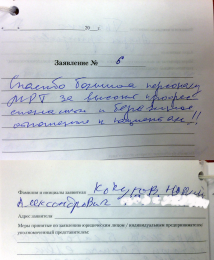 20 г.
Заявление № 6
Спасибо большое персоналу
МРТ за высокий профес
сионализм и бережное
отношение к пациентам!!
Фамилия и инициалы заявителя
Александрович
Адрес заявителя
Меры принятые по заявлению юридическим лицом / индивидуальным предпринимателем
уполномоченный представителем: